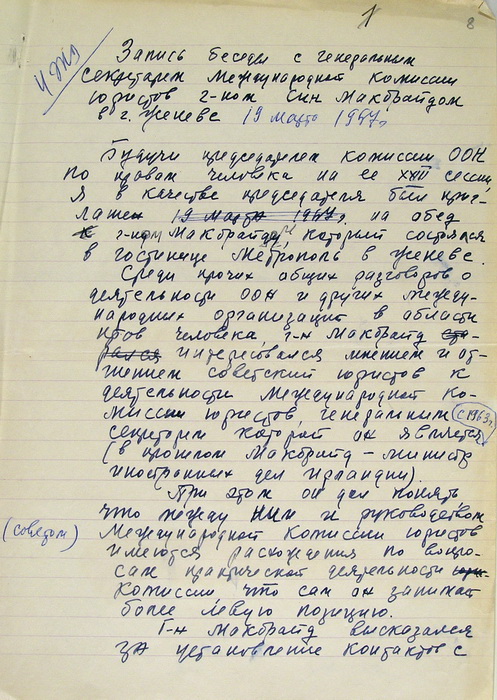 1 8
Запись беседы с генеральным
секретарем Международной Комиссии
юристов г-ном Син Макбрайдом
в г. Женеве 19 марта 1967 г.
Будучи председателем комиссии ООН
по правам человека на ее XXIII сессии,
я в качестве председателя был приг-
лашен 19 марта 1967 г. на обед
к г-ну Макбрайду, который состоялся
в гостинице Метрополь в Женеве.
Среди прочих общих разговоров о
деятельности ООН и других между-
народных организаций в области
прав человека, г-н Макбрайд ста-
рался интересовался мнением и от-
ношением советских юристов к
деятельности Международной Ко-
миссии юристов, генеральным (с 1963 г.)
секретарем которой он является
(в прошлом Макбрайд – министр
иностранных дел Ирландии).
При этом он дал понять,
что между ним и руководством
(советом) Международной Комиссии юристов
имеются расхождения по вопро-
сам практической деятельности
Комиссии, что сам он занимает
более левую позицию.
Г-н Макбрайд высказался
за установление контактов с